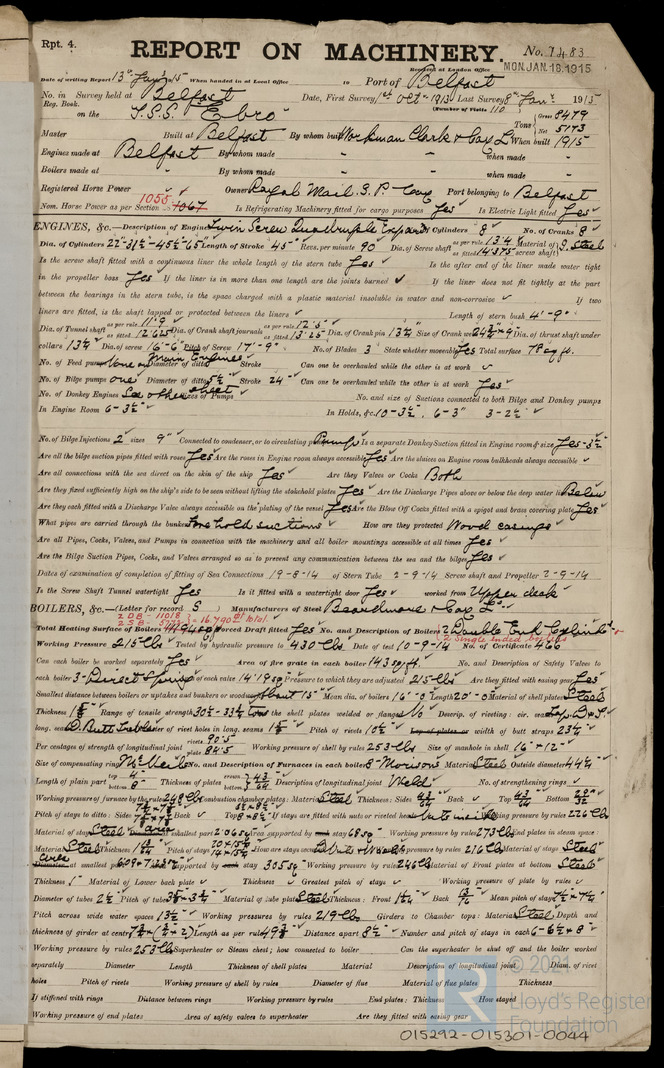 Rpt. 4.
REPORT ON MACHINERY.
No. 7483
Received at London Office
MON. JAN. 18. 1915
Date of writing Report 13th Jany 1915 When handed in at Local Office to Port of Belfast
No. in Survey held at Belfast Date, First Survey 1st Oct 1913 Last Survey 8th Jan 1915
Reg. Book. (Number of Visits 110)
on the T.S.S. Ebro Tons Gross 8479 Net 5173
Master Built at Belfast By whom built Workman Clark & Coy Ld When built 1915
Engines made at Belfast By whom made when made
Boilers made at By whom made when made
Registered Horse Power Owner Royal Mail S. P. Coy Port belonging to Belfast
Nom. Horse Power as per Section 1055 1067 Is Refrigerating Machinery fitted for cargo purposes Yes Is Electric Light fitted Yes
ENGINES, &c.—Description of Engines Twin Screw Quadruple Expansion No. of Cylinders 8 No. of Cranks 8
Dia. of Cylinders 22"-31½-45½-65 Length of Stroke 45" Revs. per minute 90 Dia. of Screw shaft as per rule 13.4 as fitted 14.375 Material of screw shaft S. Steel
Is the screw shaft fitted with a continuous liner the whole length of the stern tube Yes Is the after end of the liner made water tight
in the propeller boss Yes If the liner is in more than one length are the joints burned If the liner does not fit tightly at the part
between the bearings in the stern tube, is the space charged with a plastic material insoluble in water and non-corrosive If two
liners are fitted, is the shaft lapped or protected between the liners Length of stern bush 4'-9"
Dia. of Tunnel shaft as per rule 11.9 as fitted 12.625 Dia. of Crank shaft journals as per rule 12.5 as fitted 13.25 Dia. of Crank pin 13½ Size of Crank webs 24½×9 Dia. of thrust shaft under
collars 13½ Dia. of screw 16'-6 Pitch of Screw 17'-9" No. of Blades 3 State whether moveable Yes Total surface 78 sq ft.
No. of Feed pumps None on Main Engines Diameter of ditto Stroke Can one be overhauled while the other is at work
No. of Bilge pumps one Diameter of ditto 5½ Stroke 24" Can one be overhauled while the other is at work Yes
No. of Donkey Engines See other sheet Sizes of Pumps No. and size of Suctions connected to both Bilge and Donkey pumps
In Engine Room 6-3½" In Holds, &c. 10-3½", 6-3" 3-2½"
No. of Bilge Injections 2 sizes 9" Connected to condenser, or to circulating pump Pump Is a separate Donkey Suction fitted in Engine room & size Yes-3½"
Are all the bilge suction pipes fitted with roses Yes Are the roses in Engine room always accessible Yes Are the sluices on Engine room bulkheads always accessible
Are all connections with the sea direct on the skin of the ship Yes Are they Valves or Cocks Both
Are they fixed sufficiently high on the ship's side to be seen without lifting the stokehold plates Yes Are the Discharge Pipes above or below the deep water line Below
Are they each fitted with a Discharge Valve always accessible on the plating of the vessel Yes Are the Blow Off Cocks fitted with a spigot and brass covering plate Yes
What pipes are carried through the bunkers Fore hold suctions How are they protected Wood casings
Are all Pipes, Cocks, Valves, and Pumps in connection with the machinery and all boiler mountings accessible at all times Yes
Are the Bilge Suction Pipes, Cocks, and Valves arranged so as to prevent any communication between the sea and the bilges Yes
Dates of examination of completion of fitting of Sea Connections 19-8-14 of Stern Tube 2-9-14 Screw shaft and Propeller 2-9-14
Is the Screw Shaft Tunnel watertight Yes Is it fitted with a watertight door Yes worked from Upper deck
BOILERS, &c.—(Letter for record S) Manufacturers of Steel Beardmore & Coy Ld
2 DB - 11018
2 SB - 5772 = 16,790 sq ft total.
Total Heating Surface of Boilers Forced Draft fitted Yes No. and Description of Boilers 2 Double End Cylindl
2 Single ended
Working Pressure 215 lbs Tested by hydraulic pressure to 430 lbs Date of test 10-9-14 No. of Certificate 466
Can each boiler be worked separately Yes Area of fire grate in each boiler 143 sq ft. No. and Description of Safety Valves to
each boiler 3-Direct Spring Area of each valve 14.19 sq Pressure to which they are adjusted 215 lbs Are they fitted with easing gear Yes
Smallest distance between boilers or uptakes and bunkers or woodwork about 15" Mean dia. of boilers 16'-0 Length 20'-0 Material of shell plates Steel
Thickness Range of tensile strength 30½-33½ tons Are the shell plates welded or flanged No Descrip. of riveting: cir. seams Lap D & T
long. seams D. Butt Treble Diameter of rivet holes in long. seams Pitch of rivets 10½ Lap of plates or width of butt straps 23½
Per centages of strength of longitudinal joint rivets 90.5 plate 84.5 Working pressure of shell by rules 253 lbs Size of manhole in shell 16"×12"
Size of compensating ring McNeil No. and Description of Furnaces in each boiler 8-Morisons Material Steel Outside diameter 44½
Length of plain part top 4" bottom 8" Thickness of plates crown 43/64 bottom 43/64 Description of longitudinal joint Weld No. of strengthening rings
Working pressure of furnace by the rules 248 lbs Combustion chamber plates: Material Steel Thickness: Sides 43/64 Back Top 43/64 Bottom 29/32
Pitch of stays to ditto: Sides Back Top If stays are fitted with nuts or riveted heads Nuts inside Working pressure by rules 226 lbs
Material of stays Steel Area at smallest part 2.06 sq Area supported by each stay 68 sq Working pressure by rules 273 lbs End plates in steam space:
Material Steel Thickness Pitch of stays How are stays secured D. Nuts & Washers Working pressure by rules 216 lbs Material of stays Steel
Area at smallest part supported by each stay 305 sq Working pressure by rules 246 lbs Material of Front plates at bottom Steel
Thickness 1" Material of Lower back plate Thickness Greatest pitch of stays Working pressure of plate by rules
Diameter of tubes 2½ Pitch of tubes Material of tube plates Steel Thickness: Front Back Mean pitch of stays
Pitch across wide water spaces 13½ Working pressures by rules 219 lbs Girders to Chamber tops: Material Steel Depth and
thickness of girder at centre Length as per rule Distance apart 8½ Number and pitch of stays in each
Working pressure by rules 253 lbs Superheater or Steam chest; how connected to boiler Can the superheater be shut off and the boiler worked
separately Diameter Length Thickness of shell plates Material Description of longitudinal joint Diam. of rivet
holes Pitch of rivets Working pressure of shell by rules Diameter of flue Material of flue plates Thickness
If stiffened with rings Distance between rings Working pressure by rules End plates: Thickness How stayed
Working pressure of end plates Area of safety valves to superheater Are they fitted with easing gear
© 2021
Lloyd's Register
Foundation
015292-015301-0044